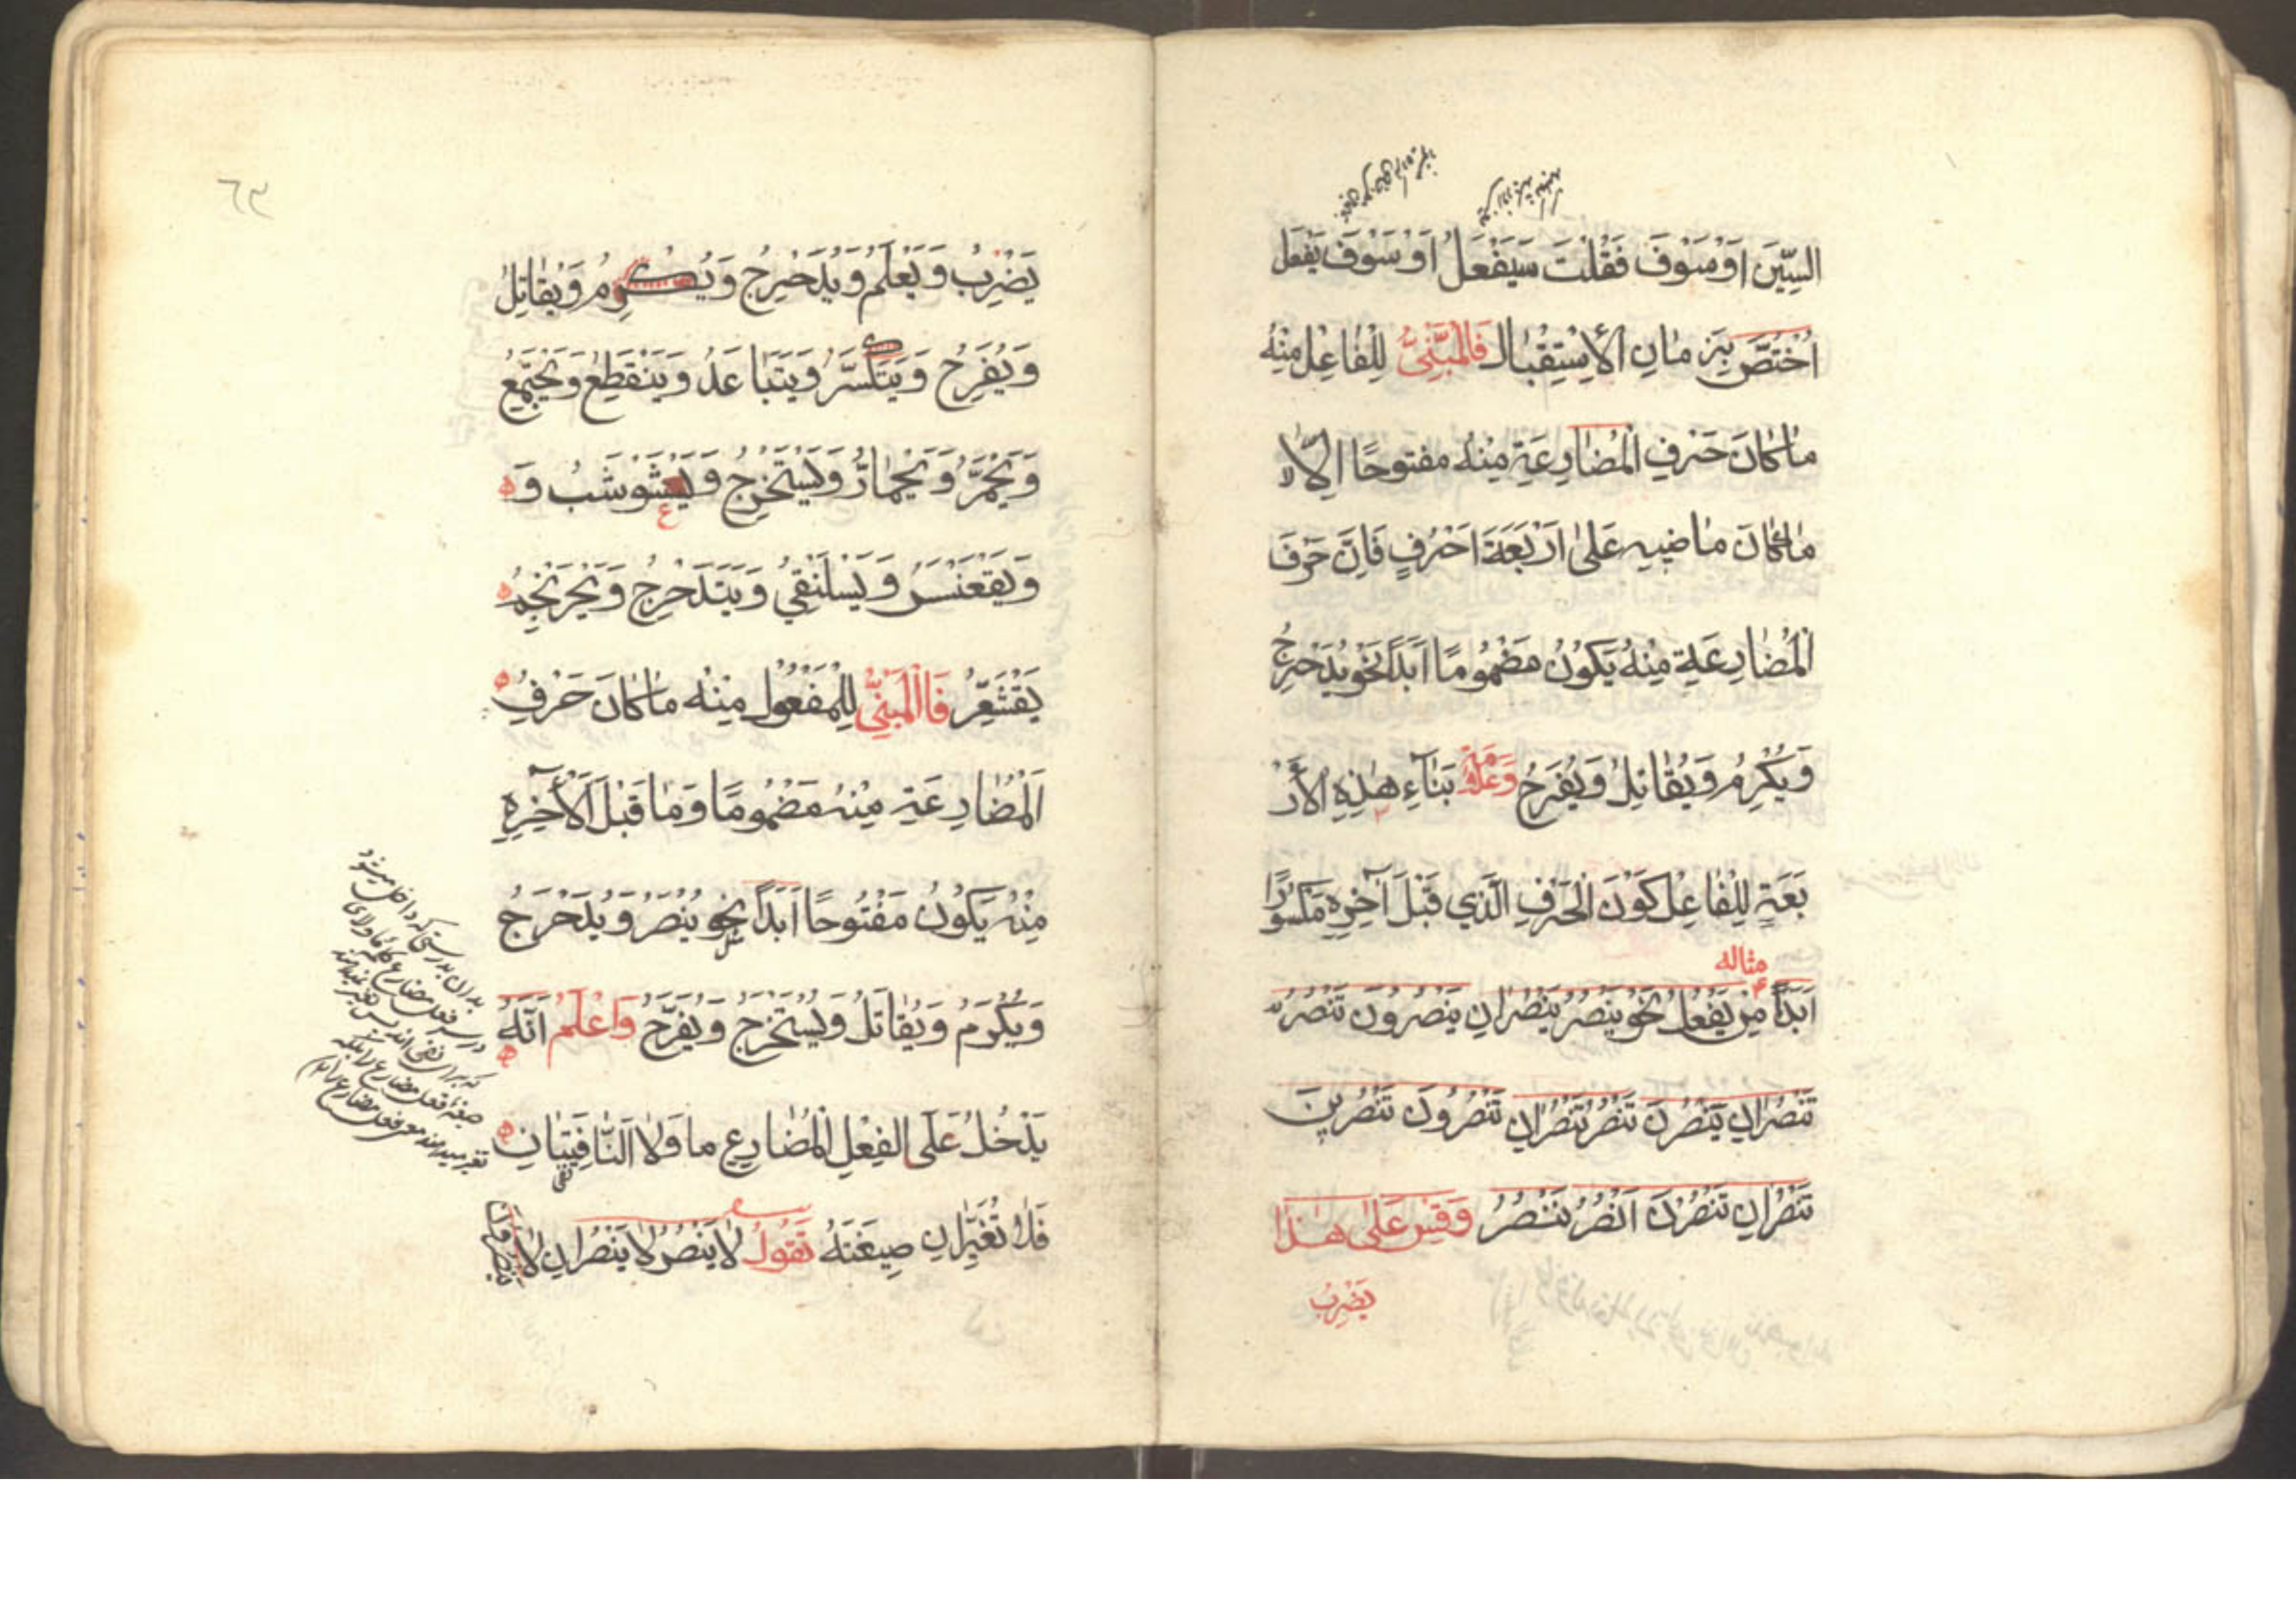 السِّينَ اَوْ سَوْفَ فَقُلْتَ سَيَفْعَلُ اَوْ سَوْفَ يَفْعَل
اُخْتُصَّ بِزَمانِ الْاِسْتِقْبالِ فَالْمَبْنِيُّ لِلْفٰاعِلِ مِنْهُ
مٰا كٰانَ حَرْفِ الْمُضٰارِعَةِ مِنْهُ مفتوحًا اِلّا
مٰا كٰانَ مٰاضيهِ عَلىٰ اَرْبَعَةَ اَحْرُفٍ فَاِنَّ حَرْفَ
الْمُضٰارِعَةِ مِنْهُ يَكوُنُ مَضْمُومًا اَبَدًا نَحْوُ يُدَحْرِجُ
وَيُكْرِمُ وَيُقٰاتِلُ وَيُفَرِحُ وَعَلٰامَةُ بَنٰآءِ هٰذِهِ الْأَرْ
بَعَةِ لِلْفٰاعِلِ كَوْنَ الْحَرْفِ الَّذي قَبْلَ آخِرِهِ مَكْسُورًا
مثاله
اَبَدًا مِنْ يَفْعُلُ نَحْوُ يَنْصُرُ يَنْصُرٰانِ يَنْصُرُونَ تَنْصُرُ
تَنْصُرٰانِ يَنْصُرْنَ تَنْصُرُ تَنْصُرٰانِ تَنْصُرُونَ تَنْصُرينَ
تَنْصُرٰانِ تَنْصُرْنَ اَنْصُرُ نَنْصُرُ وَقِسْ عَلىٰ هٰذٰا
يَضْرِبُ
٦٣
يَضْرِبُ وَيَعْلَمُ وَيُدَحْرِجُ وَيُكْرِمُ وَيُقٰاتِلُ
وَيُفَرِحُ وَيَتَكَسَّرُ وَيَتَبٰاعَدُ وَيَنْقَطِعُ وَيَجْتَمِعُ
وَيَحْمَرُّ وَيَحْمٰارُّ وَيَسْتَخْرِجُ وَيَعْشَوْشَبُ وَ
وَيَقْعَنْسَسُ وَيَسْلَنْقي وَيَتَدَحْرِجُ وَيَحْرَنْجِمُ
يَقْشَعِرُّ فَاالْمَبْنِيُّ لِلْمَفْعُولِ مِنْهُ مٰا كٰانَ حَرْفِ
الْمُضٰارِعَةِ مِنْهُ مَضْمُومًا وَمٰا قَبْلَ الْأٓخِرِهِ
مِنْهُ يَكُونُ مَفْتُوحًا اَبَدًا نَحْوُ يُنْصَرُ وَيُدَحْرَجُ
وَيُكْرَمُ وَيُقٰاتَلُ وَيُسْتَخْرَجُ وَيُفَرَّحُ وَاعْلَمْ اَنَّهُ
يَدْخُلُ عَلَى الْفِعْلِ الْمُضٰارِعِ ما وَلٰا اَلنّٰافِيَتٰانِ
فَلٰا تُغَيِّرٰانِ صِيغَتَهُ تَقُولُ لٰا يَنْصُرُ لٰا يَنْصُرٰانِ لٰا
بدان بدرستی که داخل میشود